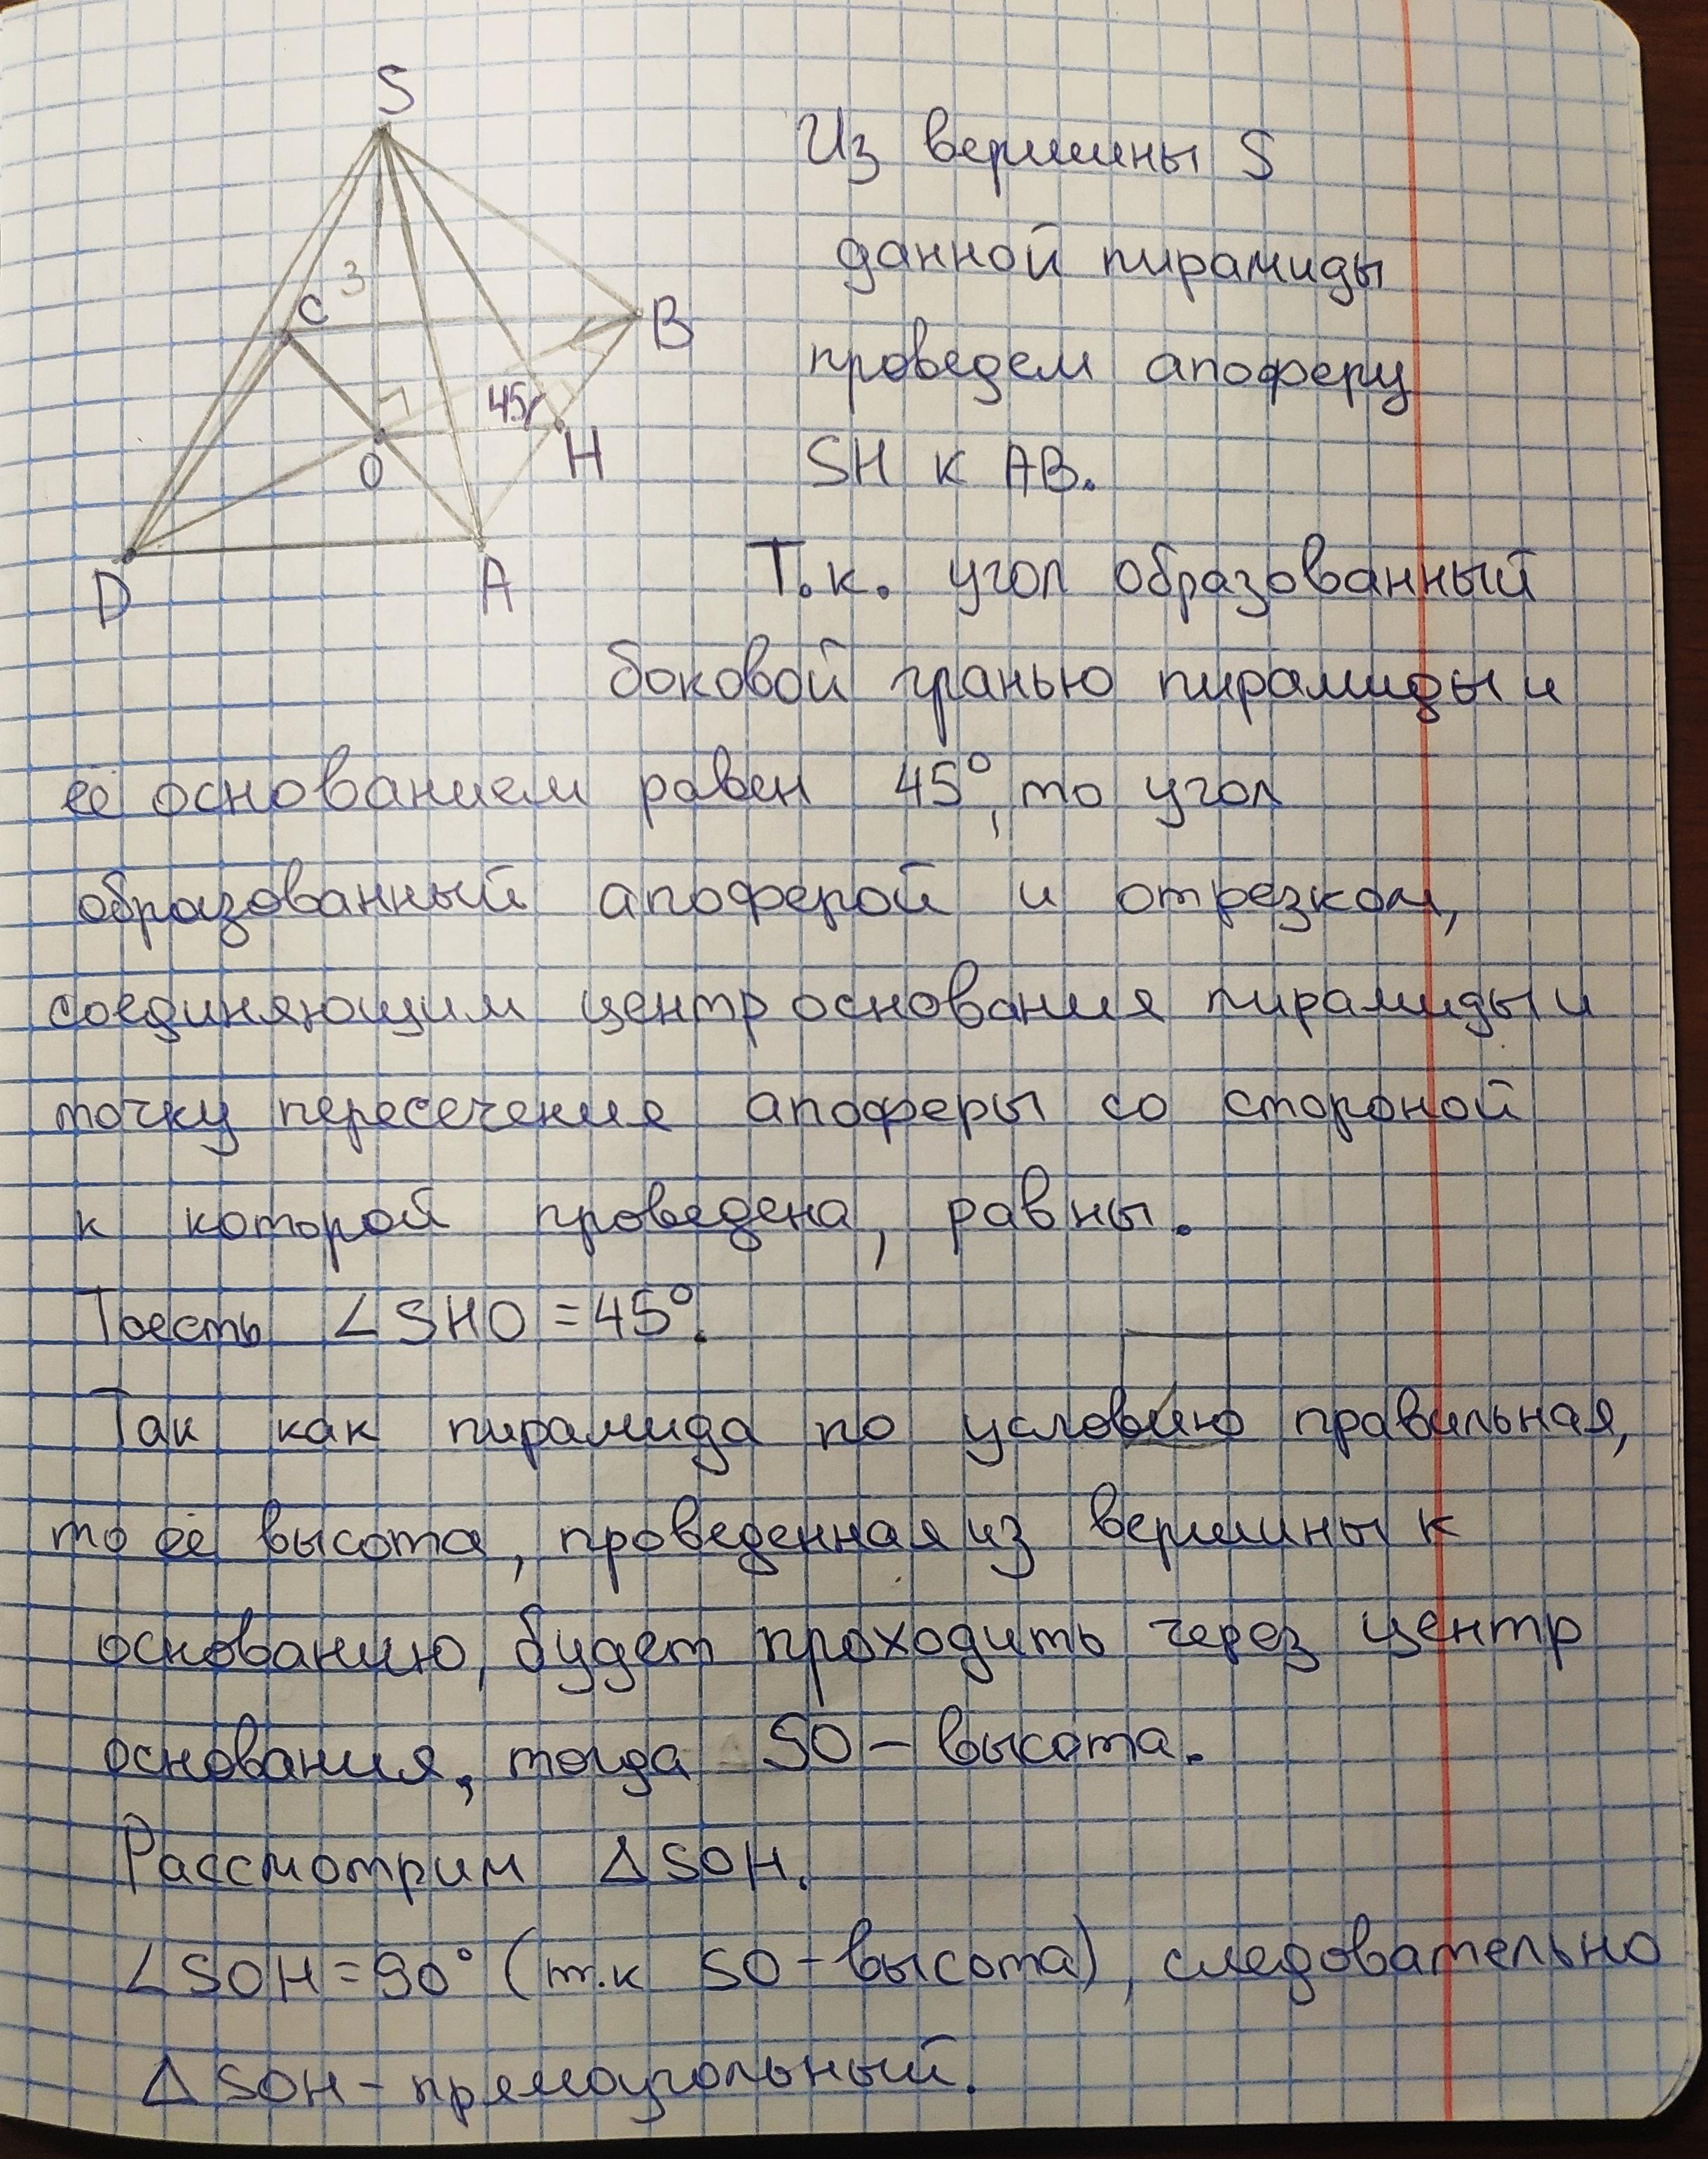 S
Из вершины S
данной пирамиды
3
C
B
проведем апоферу
45
H
O
SH к AB.
D
A
Т.к. угол образованный
боковой гранью пирамиды и
её основанием равен 45°, то угол
образованный апоферой и отрезком,
соединяющим центр основания пирамиды и
точку пересечения апоферы со стороной
к которой проведена, равны.
Тоесть ∠SHO = 45°.
Так как пирамида по условию правильная,
то её высота, проведенная из вершины к
основанию, будет проходить через центр
основания, тогда SO – высота.
Рассмотрим △SOH.
∠SOH = 90° (т.к SO – высота), следовательно
△SOH – прямоугольный.